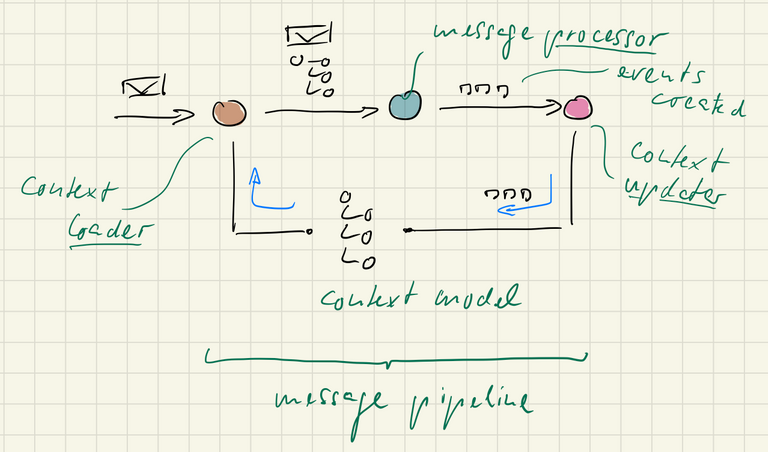 message processor
events
created
context
loader
context
updater
context model
message pipeline